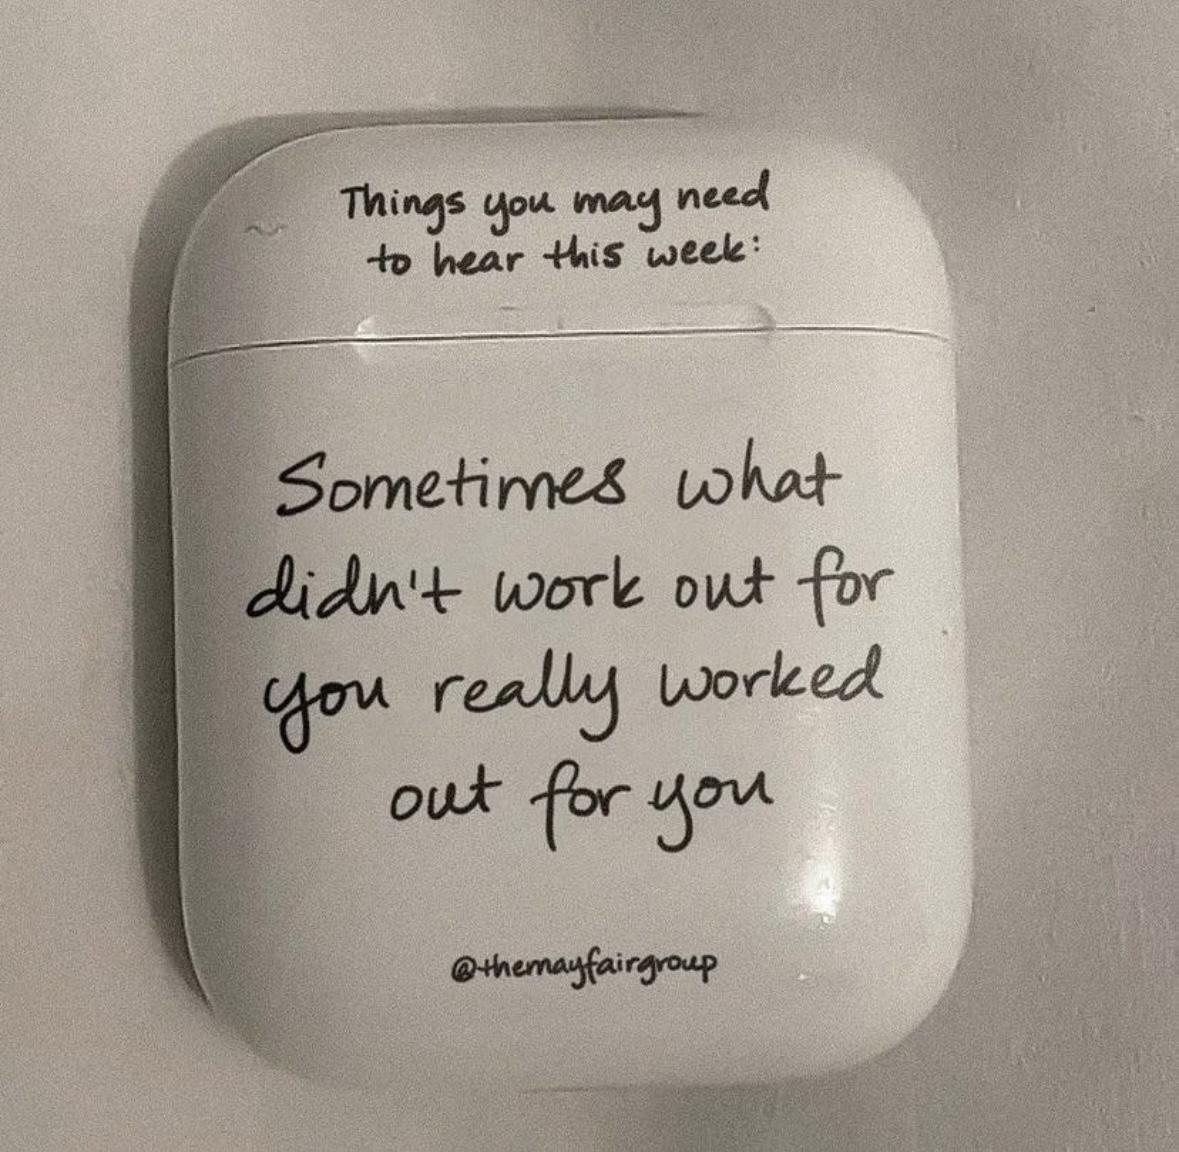 Things you may need
to hear this week:
Sometimes what
didn't work out for
you really worked
out for you
@themayfairgroup